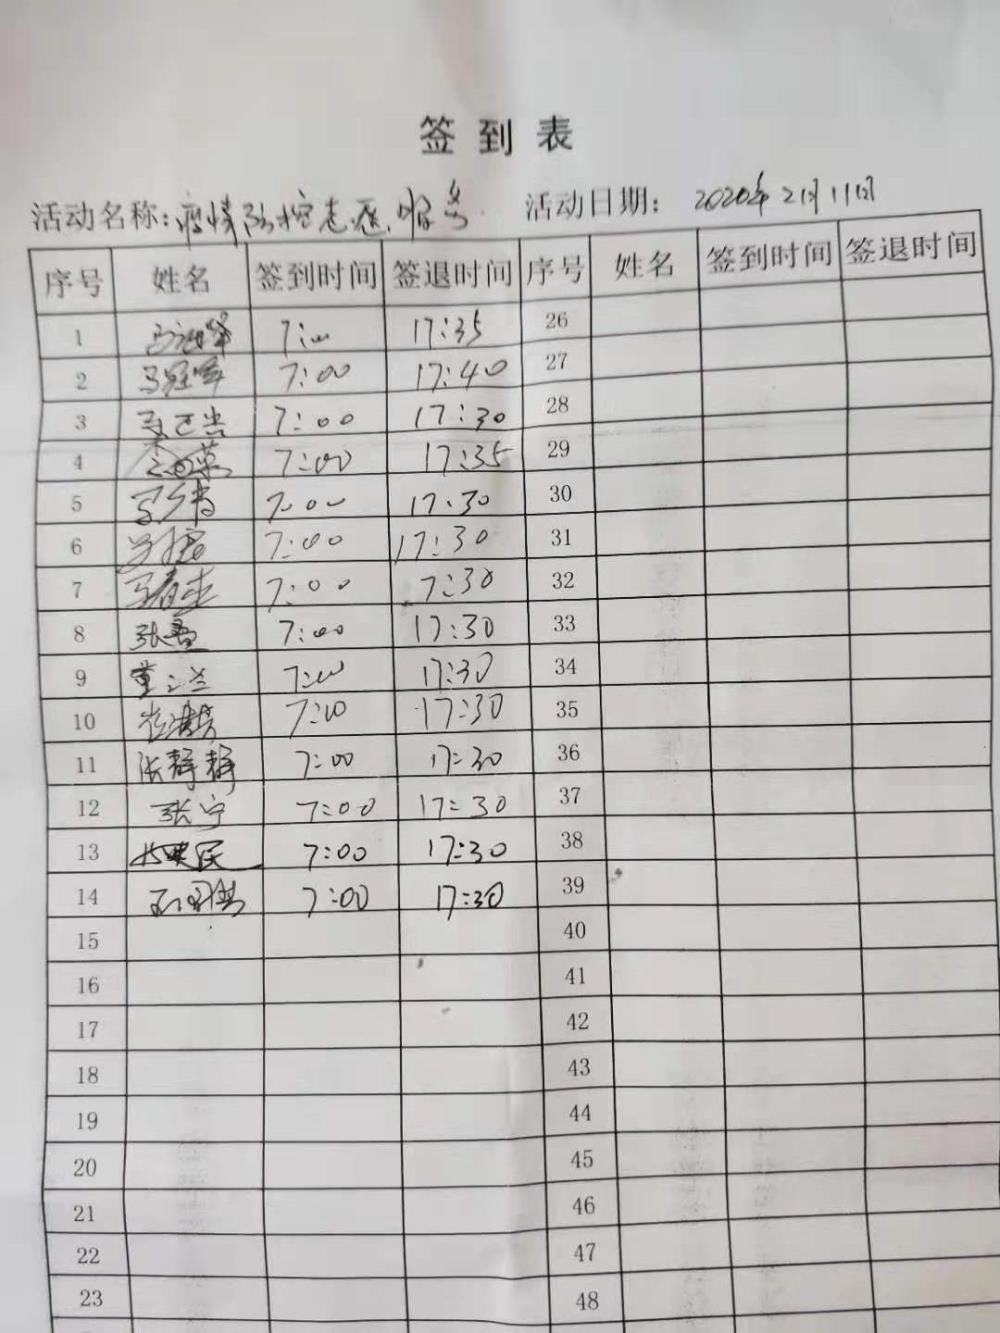 签到表
活动名称:疫情防控志愿服务 活动日期: 2020年2月11日
序号 姓名 签到时间 签退时间 序号 姓名 签到时间 签退时间
1 7:00 17:35 26
2 7:00 17:40 27
3 7:00 17:30 28
4 7:00 17:35 29
5 7:00 17:30 30
6 7:00 17:30 31
7 7:00 7:30 32
8 7:00 17:30 33
9 7:00 17:30 34
10 7:00 17:30 35
11 张静静 7:00 17:30 36
12 张宁 7:00 17:30 37
13 7:00 17:30 38
14 7:00 17:30 39
15 40
16 41
17 42
18 43
19 44
20 45
21 46
22 47
23 48